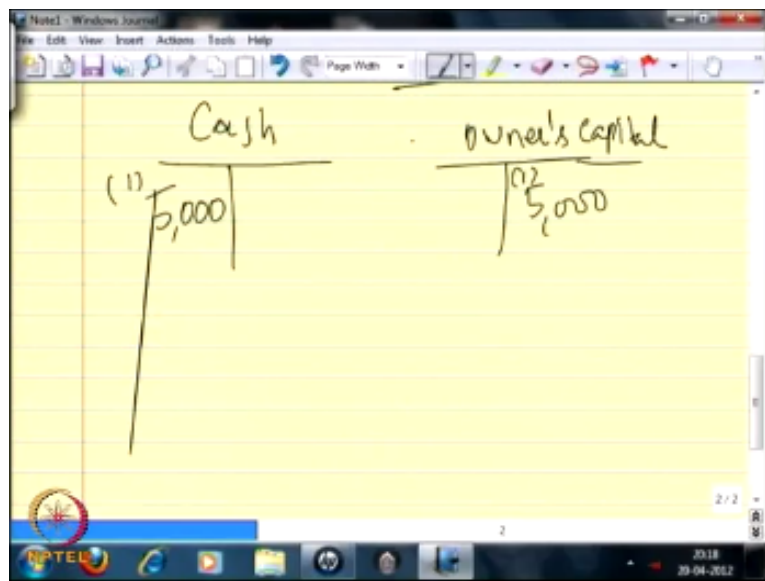 Note1 - Windows Journal
File Edit View Insert Actions Tools Help
Page Width
Cash
Owner's Capital
(1) 5,000
(1) 5,000
2 / 2
2
NPTEL
20:18
20-04-2012